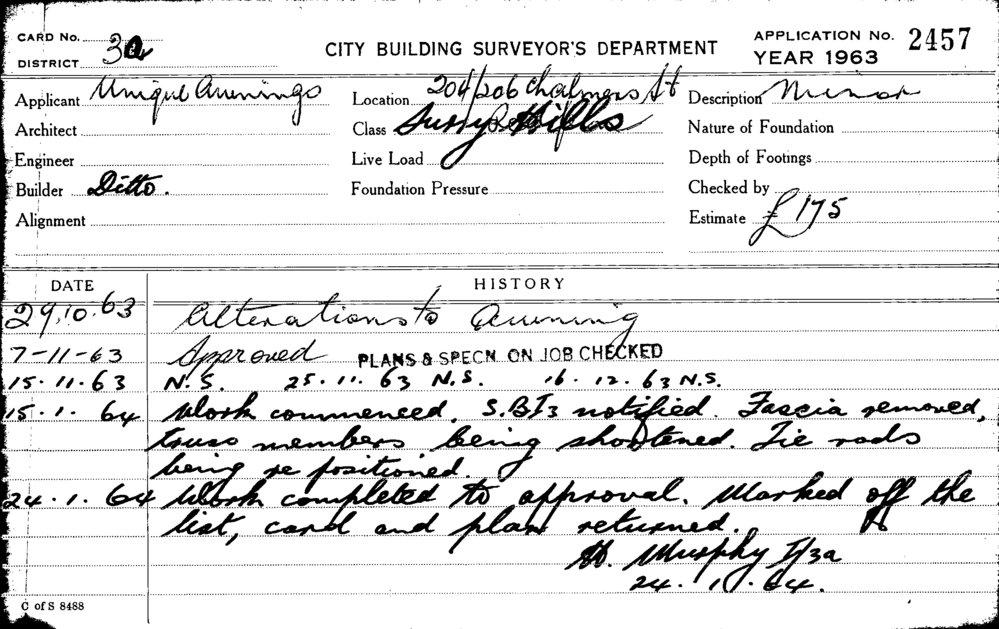 CARD No. 3a
DISTRICT
CITY BUILDING SURVEYOR'S DEPARTMENT
APPLICATION No. 2457
YEAR 1963
Applicant Unique Awnings
Location 204/206 Chalmers St
Description Minor
Architect
Class Surry Hills
Nature of Foundation
Engineer
Live Load
Depth of Footings
Builder Ditto.
Foundation Pressure
Checked by
Alignment
Estimate £175
DATE HISTORY
29.10.63 Alterations to Awning
7-11-63 Approved PLANS & SPECN. ON JOB CHECKED
15.11.63 N.S. 25.11.63 N.S. 16.12.63 N.S.
15.1.64 Work commenced. S.B.I3 notified. Fascia removed,
truss members being shortened. Tie rods
being re positioned.
24.1.64 Work completed to approval. Marked off the
list, card and plan returned.
Murphy I/3a
24.1.64.
C of S 8488